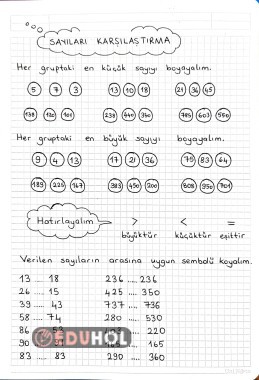 SAYILARI KARŞILAŞTIRMA
Her gruptaki en küçük sayıyı boyayalım.
5 7 3 13 10 18 21 36 45
138 120 101 239 340 785 603 550
Her gruptaki en büyük sayıyı boyayalım.
9 4 13 17 21 36 79 83 64
189 225 167 383 450 200 808 950 701
Hatırlayalım > < =
büyüktür küçüktür eşittir
Verilen sayıların arasına uygun sembolü koyalım.
13 ..... 18 236 ..... 236
26 ..... 15 425 ..... 350
39 ..... 43 737 ..... 736
58 ..... 74 280 ..... 530
86 220
EDUHOL
90 165
83 ..... 83 290 ..... 360